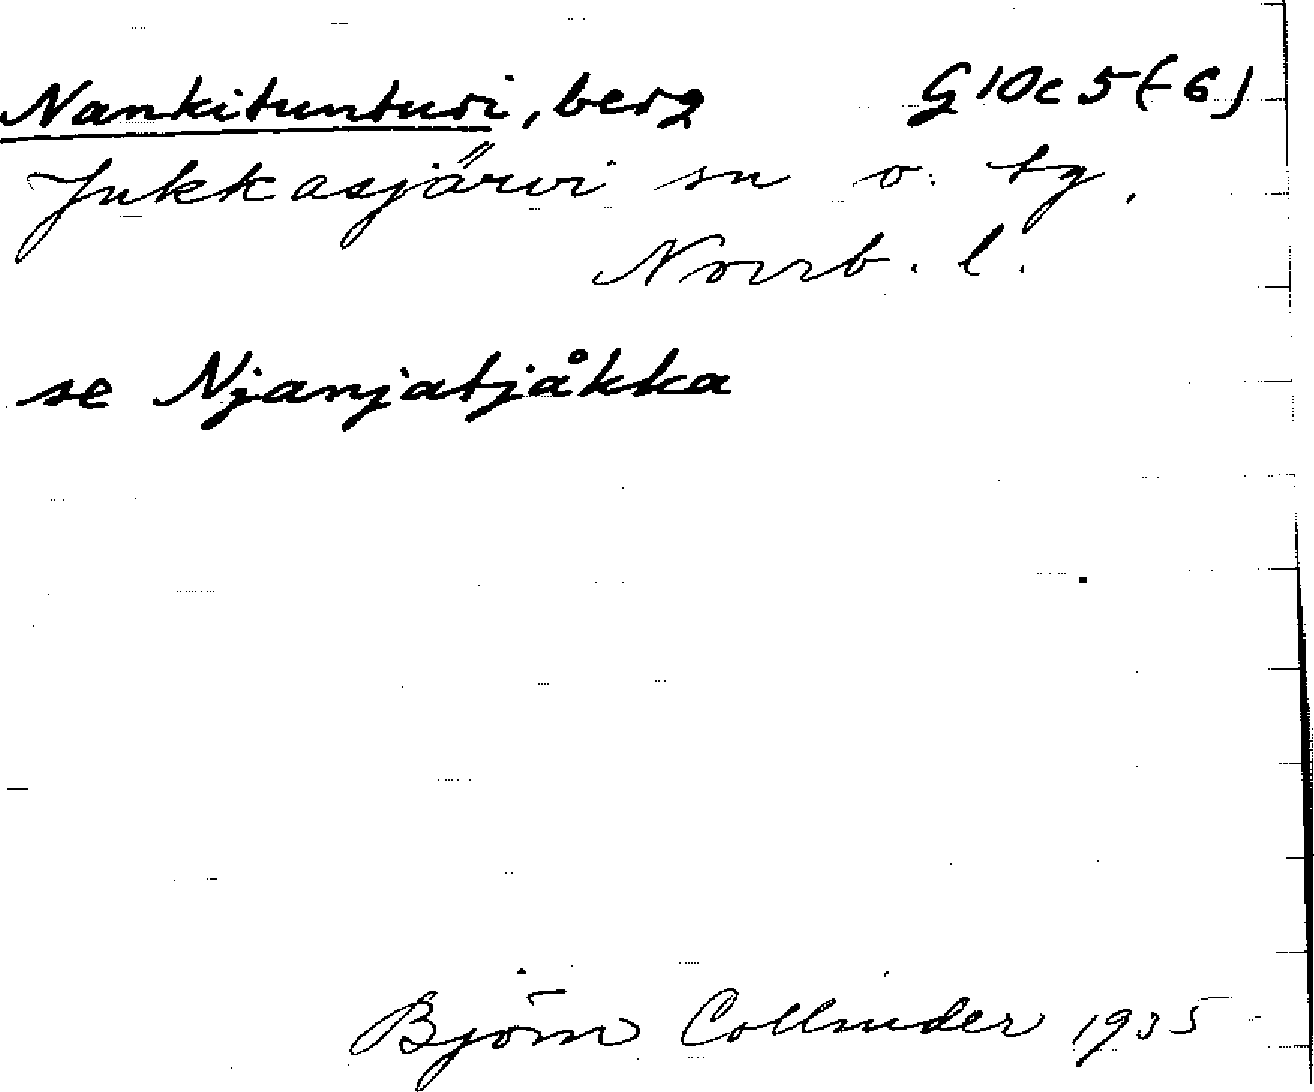 Nankitunturi, berg G10c5(-6)
Jukkasjärvi sn o. tg,
Norrb. l.
se Njanjatjåkka
Björn Collinder 1935